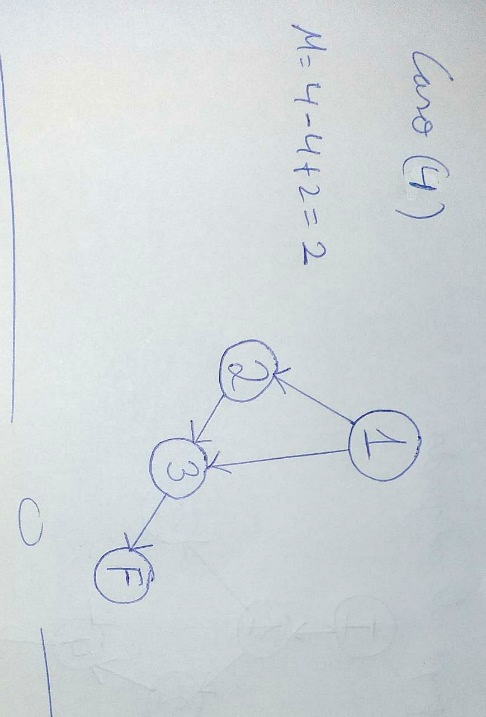 Caso (4)
M = 4 - 4 + 2 = 2
1
2
3
F